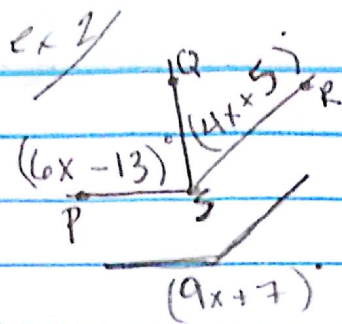 ex 2
Q
R
(6x - 13)°
P
S
(9x + 7)°